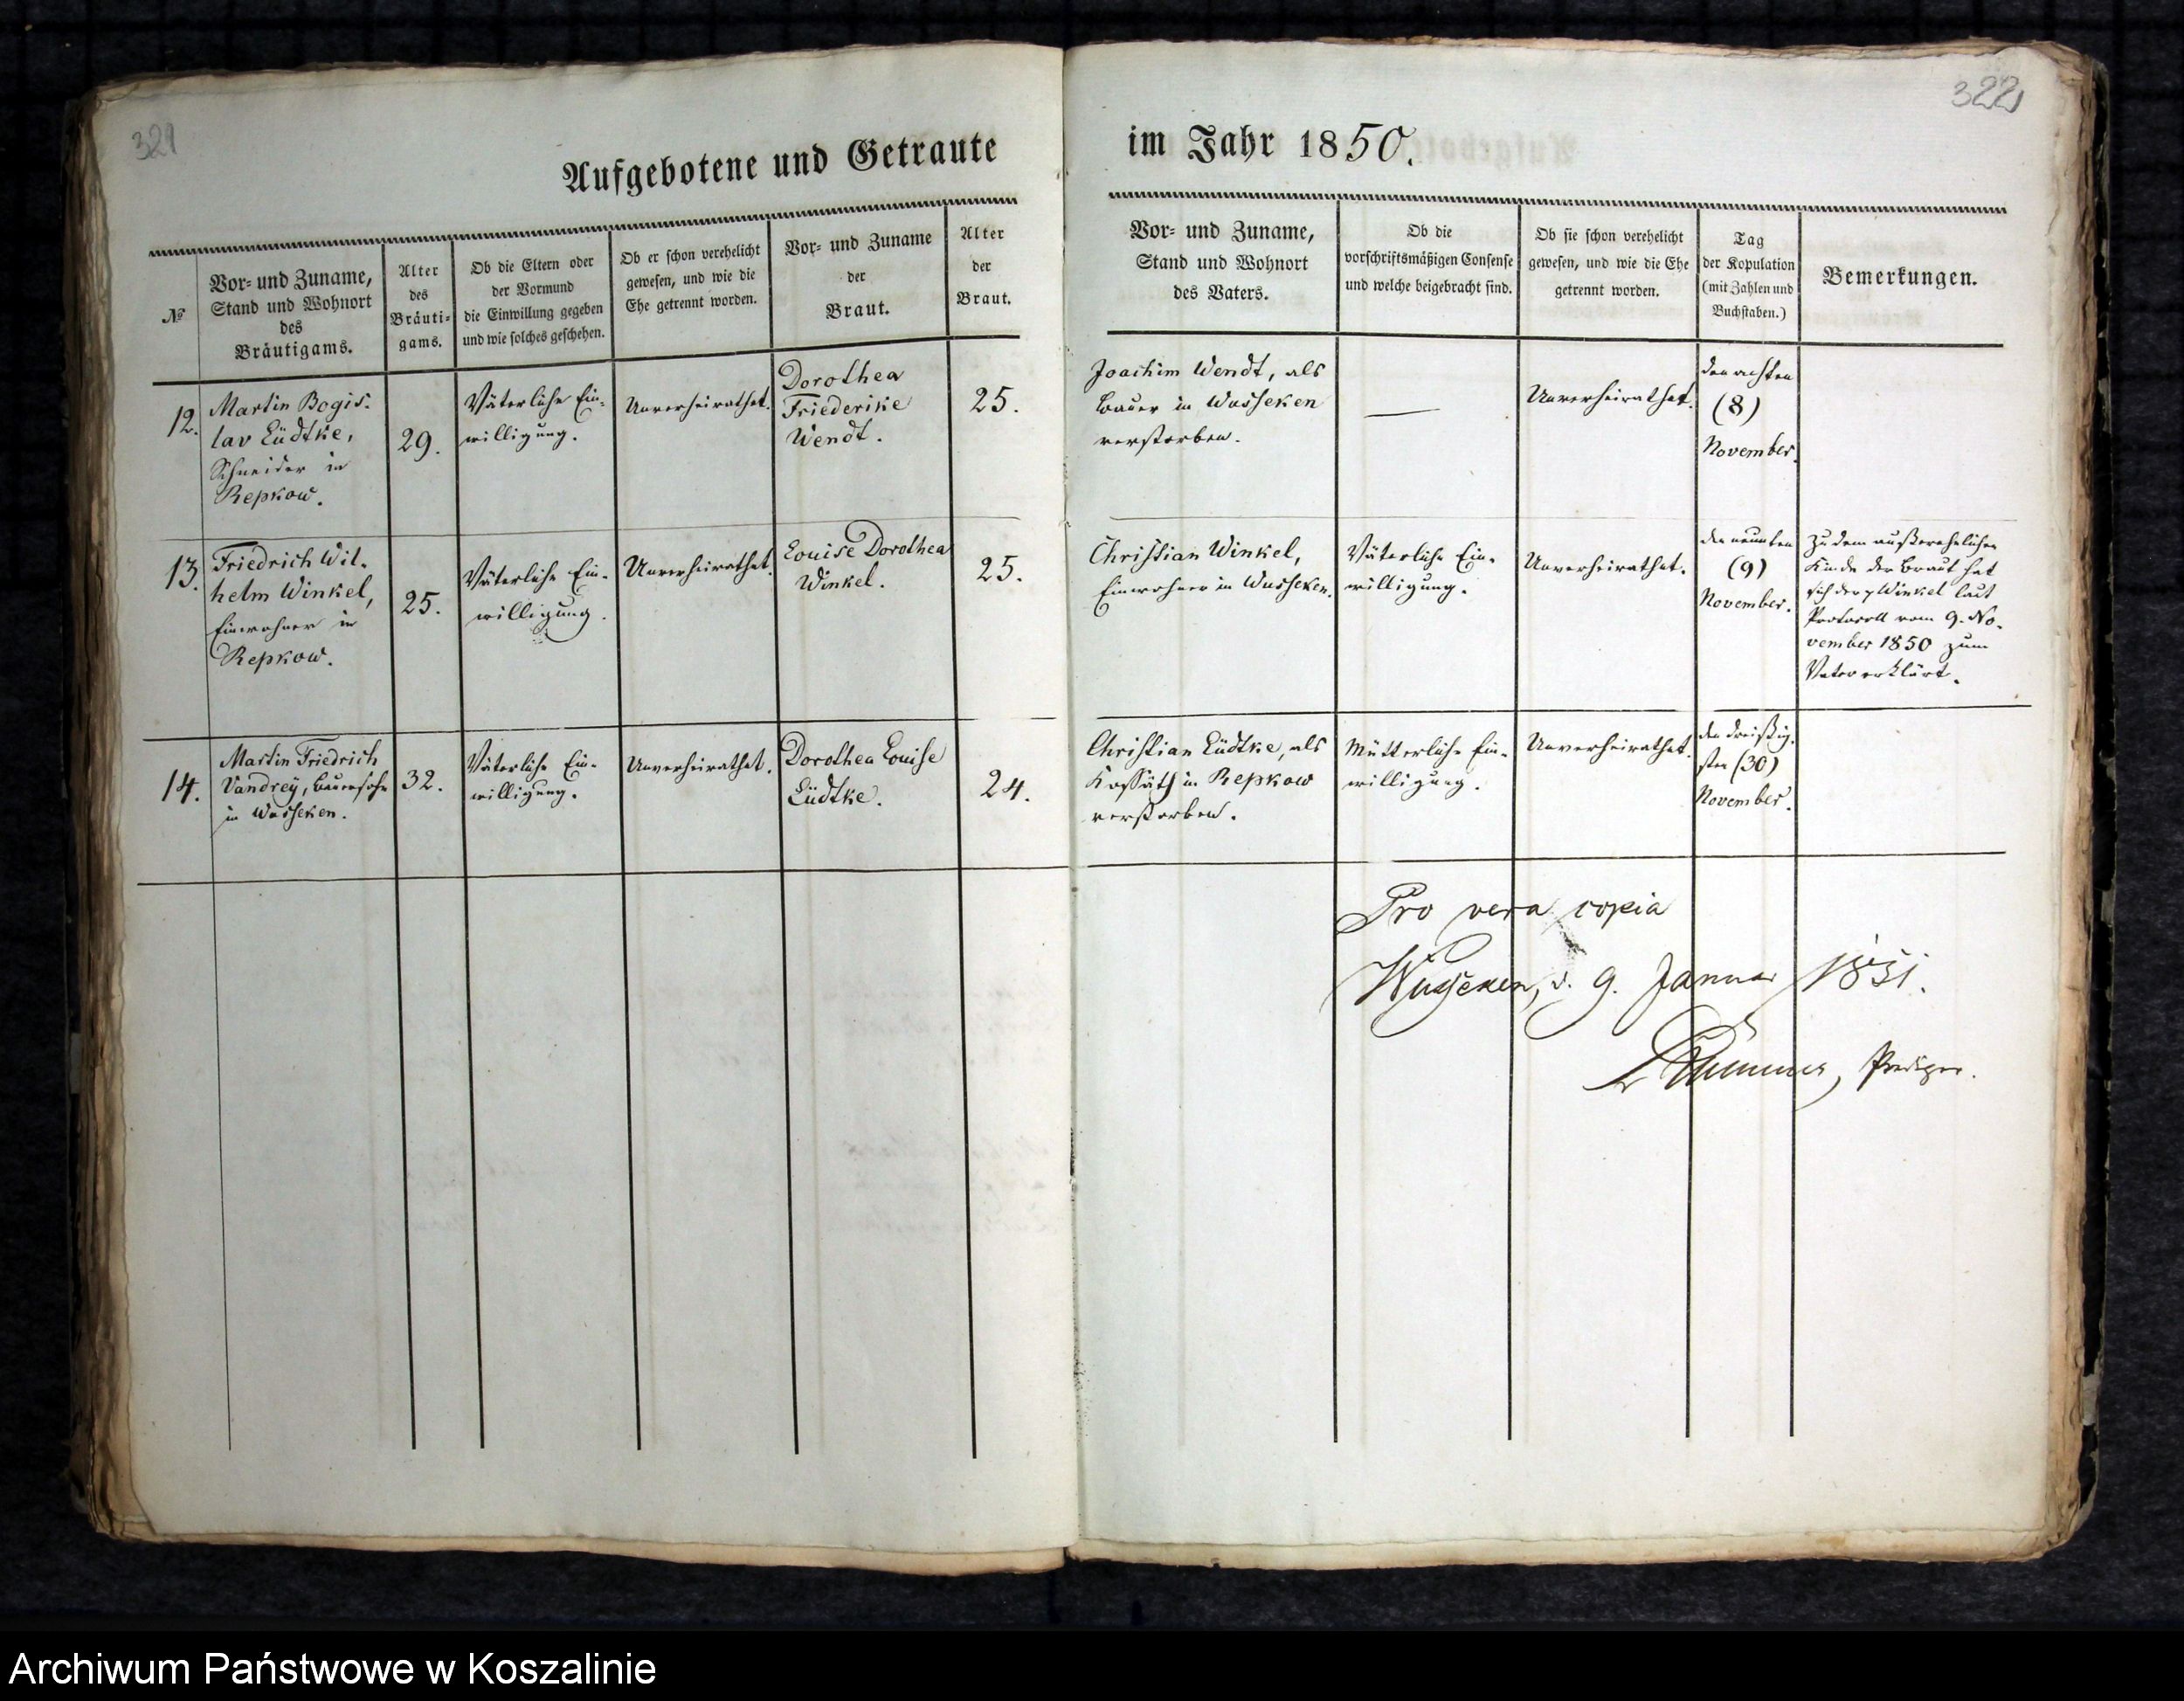 321
322
Aufgebotene und Getraute
im Jahr 1850.
№
Vor- und Zuname,
Stand und Wohnort
des
Bräutigams.
Alter
des
Bräuti-
gams.
Ob die Eltern oder
der Vormund
die Einwillung gegeben
und wie solches geschehen.
Ob er schon verehelicht
gewesen, und wie die
Ehe getrennt worden.
Vor- und Zuname
der
Braut.
Alter
der
Braut.
Vor- und Zuname,
Stand und Wohnort
des Vaters.
Ob die
vorschriftsmäßigen Consense
und welche beigebracht sind.
Ob sie schon verehelicht
gewesen, und wie die Ehe
getrennt worden.
Tag
der Kopulation
(mit Zahlen und
Buchstaben.)
Bemerkungen.
12.
Martin Bogis-
lav Lüdtke,
Schneider in
Repkow.
29.
Väterliche Ein-
willigung.
Unverheirathet.
Dorothea
Friederike
Wendt.
25.
Joachim Wendt, als
Bauer in Wusseken
verstorben.
—
Unverheirathet.
den achten
(8)
November.
13.
Friedrich Wil-
helm Winkel,
Einwohner in
Repkow.
25.
Väterliche Ein-
willigung.
Unverheirathet.
Louise Dorothea
Winkel.
25.
Christian Winkel,
Einwohner in Wusseken.
Väterliche Ein-
willigung.
Unverheirathet.
den neunten
(9)
November.
Zu dem außerehelichen
Kinde der Braut hat
sich der p Winkel laut
Protocoll vom 9. No-
vember 1850 zum
Vater erklärt.
14.
Martin Friedrich
Vandrey, Bauersohn
in Wusseken.
32.
Väterliche Ein-
willigung.
Unverheirathet.
Dorothea Louise
Lüdtke.
24.
Christian Lüdtke, als
Kossäth in Repkow
verstorben.
Mütterliche Ein-
willigung.
Unverheirathet.
den dreißig-
sten (30)
November.
Pro vera copia
Wusseken, d. 9. Januar 1851.
Prediger.
Archiwum Państwowe w Koszalinie